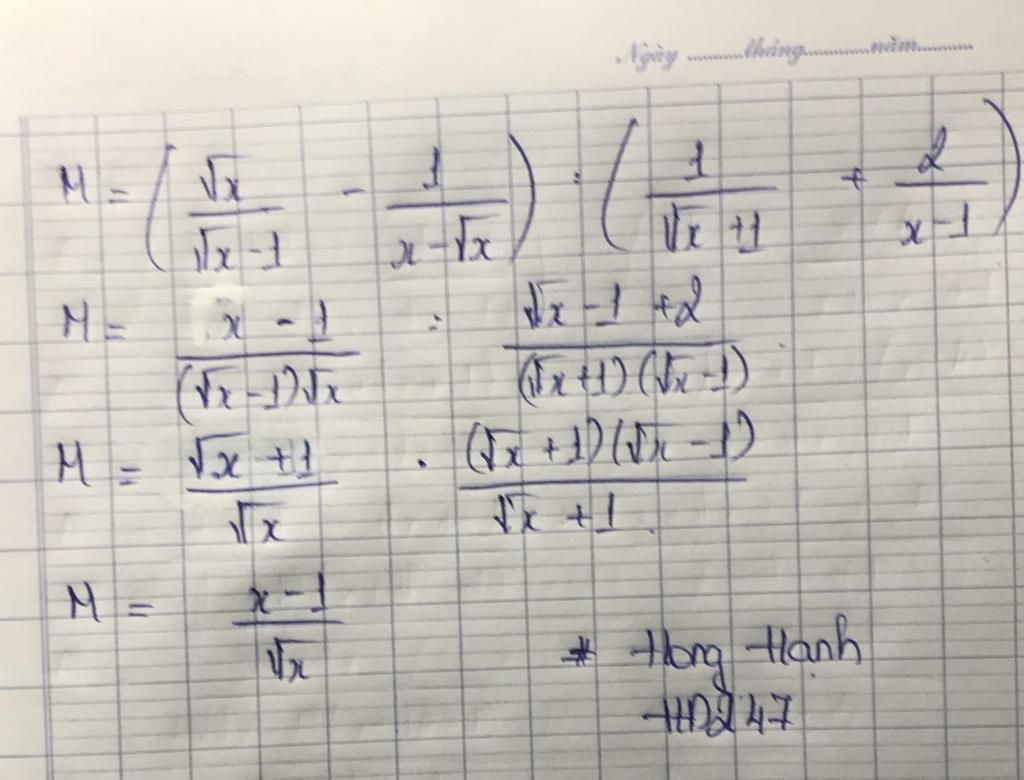 Ngày ...........tháng............năm...........
M = ( √x / (√x - 1) - 1 / (x - √x) ) : ( 1 / (√x + 1) + 2 / (x - 1) )
M = (x - 1) / ((√x - 1)√x) : (√x - 1 + 2) / ((√x + 1)(√x - 1))
M = (√x + 1) / √x . ((√x + 1)(√x - 1)) / (√x + 1)
M = (x - 1) / √x
* Hong Hạnh
HD247